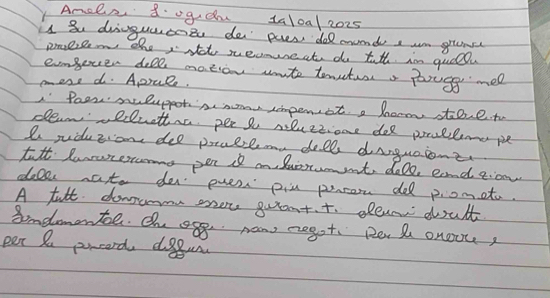 Analisi logica 19/09/2025
1 La disuguaglianza dei paesi del mondo è un grande
problema che è stato riconosciuto da tutti in quella
conferenza delle nazioni unite tenutasi a Parigi nel
mese di Aprile.
i Paesi sviluppati si sono impegnati e hanno stabilito
alcuni obbiettivi per la soluzzione del problema
la riduzione del problema delle disuguaglianze
tutti lavoreranno per il miglioramento delle condizioni
dei paesi più poveri del pianeta.
A tutti dovranno essere garantiti alcuni diritti
fondamentali che oggi sono negati per la guerra e
per la povertà diffusa